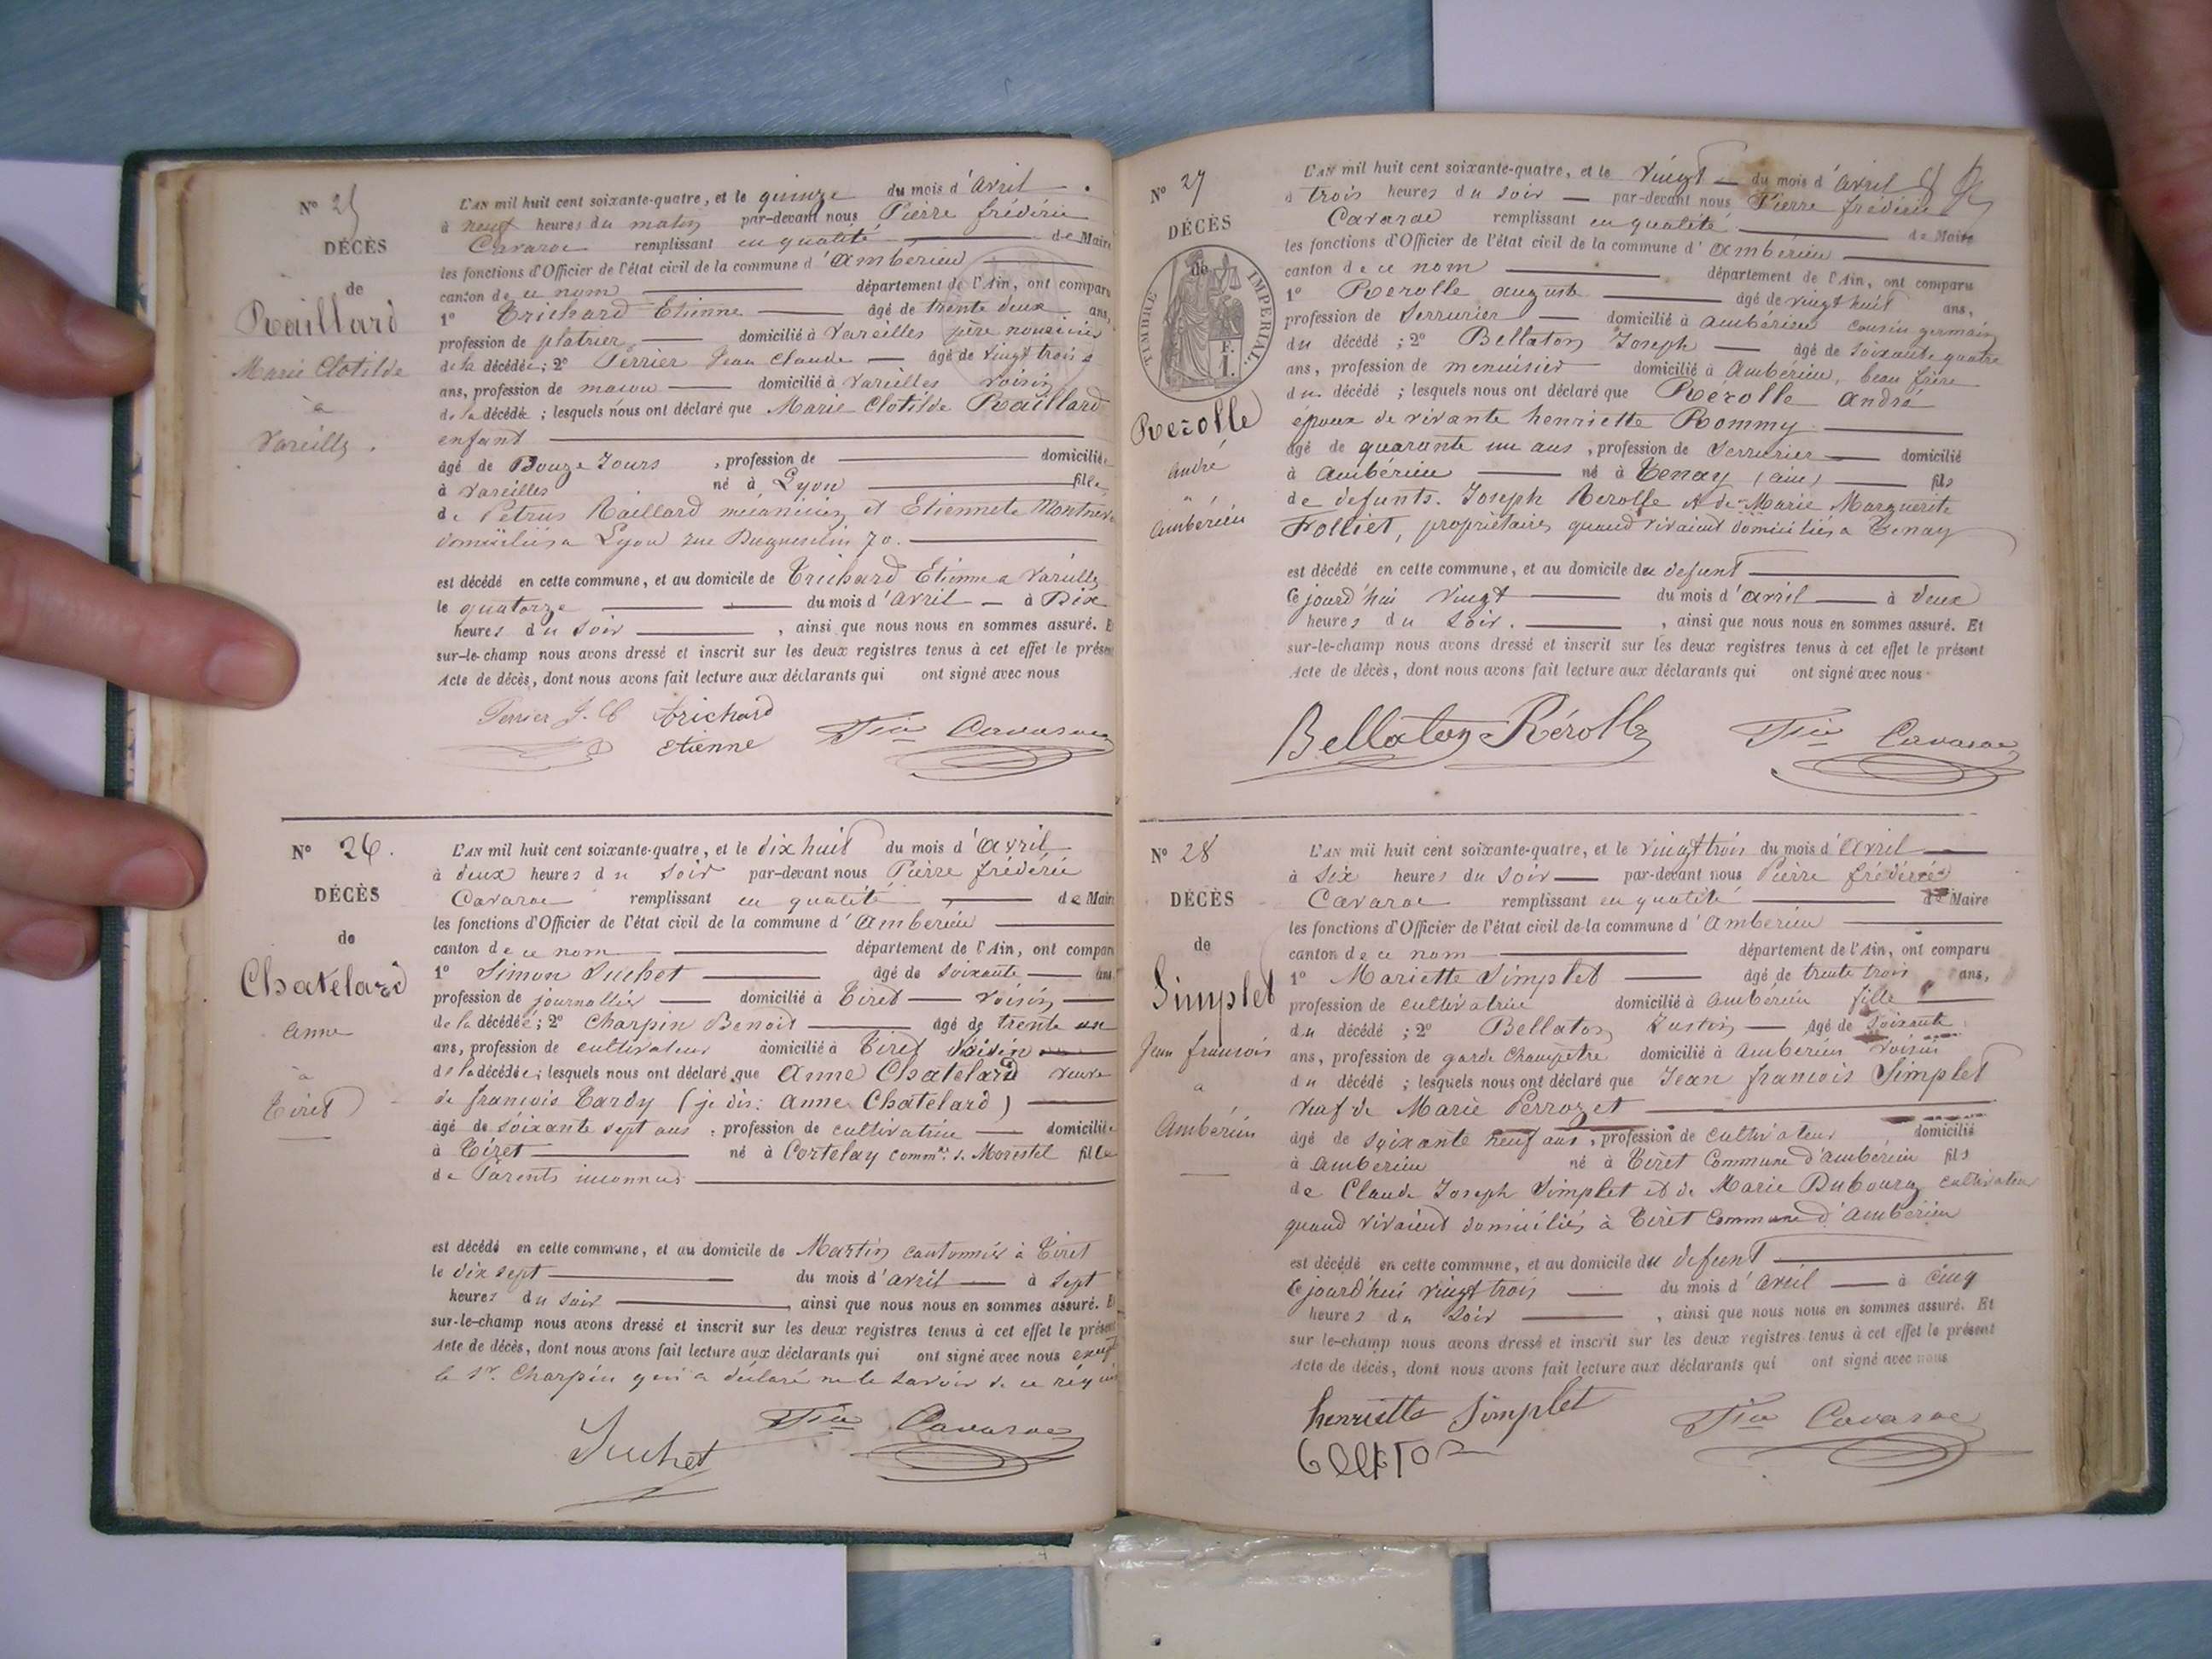 N° 25
DÉCÈS
de
Raillard
Marie Clotilde
à
Vareilles.
L'AN mil huit cent soixante-quatre, et le quinze du mois d'avril
à neuf heures du matin par-devant nous Pierre frédéric
Cavaroc remplissant en qualité de Maire
les fonctions d'Officier de l'état civil de la commune d'ambérieu
canton de ce nom département de l'Ain, ont comparu
1° Trichard Etienne âgé de trente deux ans,
profession de platrier domicilié à Vareilles père nourricier
de la décédée; 2° Perrier Jean Claude âgé de vingt trois
ans, profession de maçon domicilié à Vareilles voisin
de la décédé ; lesquels nous ont déclaré que Marie Clotilde Raillard
enfant
âgé de Douze Jours , profession de domicilié
à Vareilles né à Lyon fille
de Petrus Raillard mécanicien et Etiennete
domiciliés a Lyon rue Duguesclin 70.
est décédé en cette commune, et au domicile de Trichard Etienne a Vareilles
le quatorze du mois d'avril à Dix
heures du soir , ainsi que nous nous en sommes assuré. Et
sur-le-champ nous avons dressé et inscrit sur les deux registres tenus à cet effet le présent
Acte de décès, dont nous avons fait lecture aux déclarants qui ont signé avec nous
Perrier J. C trichard
etienne
Fic Cavaroc
N° 26.
DÉCÈS
de
Chatelard
Anne
à
Tiret
L'AN mil huit cent soixante-quatre, et le dix huit du mois d'avril
à deux heures du soir par-devant nous Pierre frédéric
Cavaroc remplissant en qualité de Maire
les fonctions d'Officier de l'état civil de la commune d'Ambérieu
canton de ce nom département de l'Ain, ont comparu
1° Simon Suchet âgé de soixante ans
profession de journallier domicilié à Tiret voisin
de la décédée; 2° Charpin Benoit âgé de trente un
ans, profession de cultivateur domicilié à Tiret voisin
de la décédée; lesquels nous ont déclaré que Anne Chatelard veuve
de francois Tardy (je dis: Anne Chatelard)
âgé de soixante sept ans , profession de cultivatrice domicilié
à Tiret né à Cortelay comm. de Morestel fille
de Parents inconnus
est décédé en cette commune, et au domicile de Martin cantonnier à Tiret
le dix sept du mois d'avril à sept
heures du soir , ainsi que nous nous en sommes assuré. Et
sur-le-champ nous avons dressé et inscrit sur les deux registres tenus à cet effet le présent
Acte de décès, dont nous avons fait lecture aux déclarants qui ont signé avec nous excepté
le Sr. Charpin qui a déclaré ne le savoir de ce requis
Suchet
Fic Cavaroc
N° 27
DÉCÈS
de
TIMBRE IMPERIAL
Rerolle
andré
a
ambérieu
L'AN mil huit cent soixante-quatre, et le vingt du mois d'avril
à trois heures du soir par-devant nous Pierre frédéric
Cavaroc remplissant en qualité de Maire
les fonctions d'Officier de l'état civil de la commune d'ambérieu
canton de ce nom département de l'Ain, ont comparu
1° Rerolle auguste âgé de vingt huit ans,
profession de Serrurier domicilié à ambérieu cousin germain
du décédé ; 2° Bellaton Joseph âgé de soixante quatre
ans, profession de menuisier domicilié à Ambérieu, beau frère
du décédé ; lesquels nous ont déclaré que Rérolle andré
époux de vivante henriette Rommy
âgé de quarante un ans , profession de Serrurier domicilié
à ambérieu né à Tenay (ain) fils
de defunts. Joseph Rerolle et de Marie Marguerite
Folliet, propriétaires quand vivaient domiciliés a Tenay
est décédé en cette commune, et au domicile du defunt
Ce jourd'hui vingt du mois d'avril à deux
heures du soir. , ainsi que nous nous en sommes assuré. Et
sur-le-champ nous avons dressé et inscrit sur les deux registres tenus à cet effet le présent
Acte de décès, dont nous avons fait lecture aux déclarants qui ont signé avec nous
Bellaton Rérolle
Fic Cavaroc
N° 28
DÉCÈS
de
Simplet
Jean francois
a
Ambérieu
L'AN mil huit cent soixante-quatre, et le vingt trois du mois d'avril
à six heures du soir par-devant nous Pierre frédéric
Cavaroc remplissant en qualité de Maire
les fonctions d'Officier de l'état civil de la commune d'Ambérieu
canton de ce nom département de l'Ain, ont comparu
1° Mariette Simplet âgé de trente trois ans,
profession de cultivatrice domicilié à ambérieu fille
du décédé ; 2° Bellaton Justin âgé de soixante
ans, profession de garde champetre domicilié à Ambérieu voisin
du décédé ; lesquels nous ont déclaré que Jean francois Simplet
veuf de Marie Perrozet
âgé de soixante neuf ans , profession de cultivateur domicilié
à ambérieu né à Tiret Commune d'ambérieu fils
de Claude Joseph Simplet et de Marie Dubourg cultivateurs
quand vivaient domiciliés à Tiret Commune d'ambérieu
est décédé en cette commune, et au domicile du defunt
Ce jourd'hui vingt trois du mois d'avril à cinq
heures du soir , ainsi que nous nous en sommes assuré. Et
sur le-champ nous avons dressé et inscrit sur les deux registres tenus à cet effet le présent
Acte de décès, dont nous avons fait lecture aux déclarants qui ont signé avec nous
henriette Simplet
Fic Cavaroc